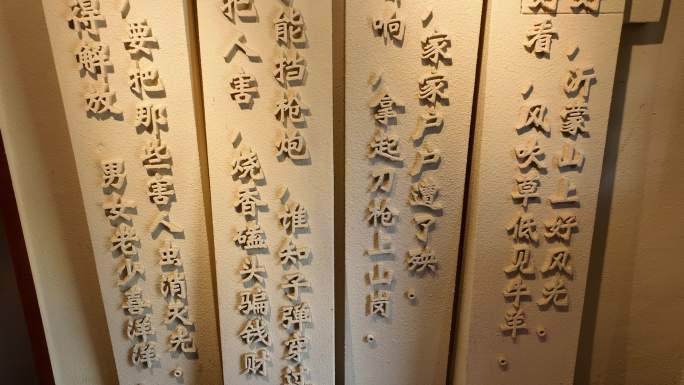 ，沂蒙山上好风光，
看，风吹草低见牛羊。
，家家户户遭了殃。
响，拿起刀枪上山岗。
能挡枪炮，谁知子弹穿过
把人害，烧香磕头骗钱财
，要把那些害人虫消灭光。
得解放，男女老少喜洋洋